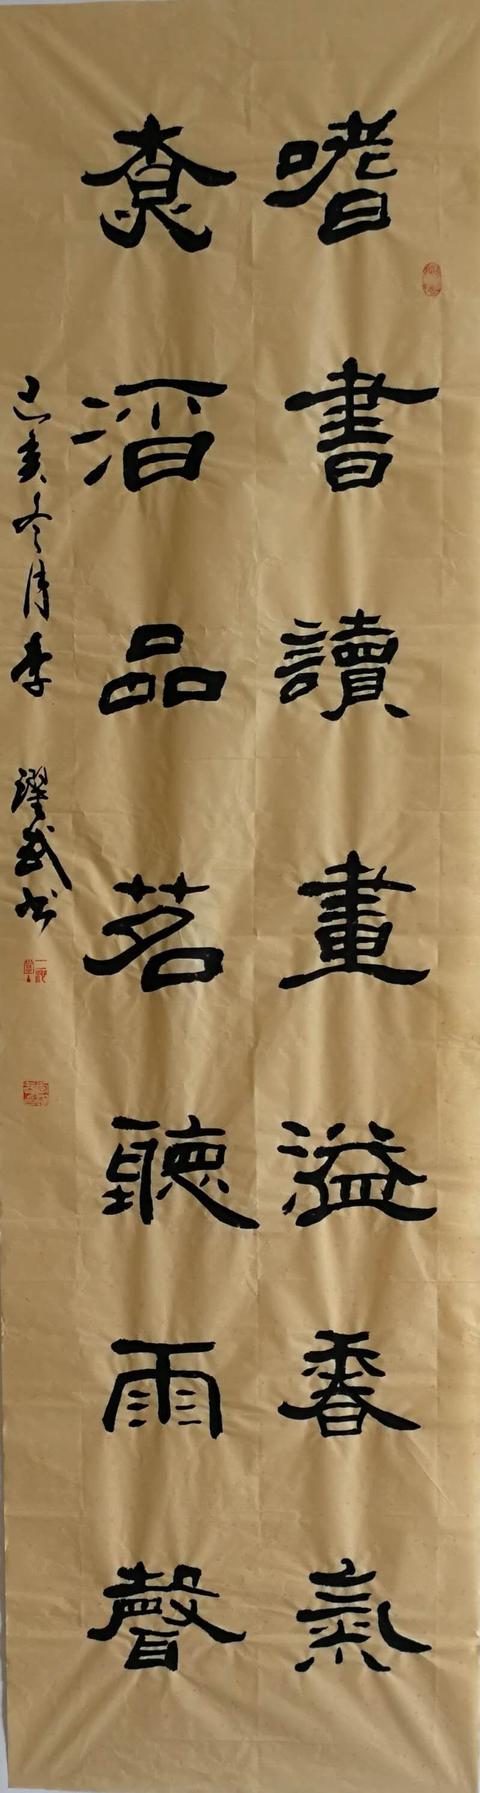 嗜書讀畫溢香氣
酒品茗聽雨聲
己亥冬月李躍武书